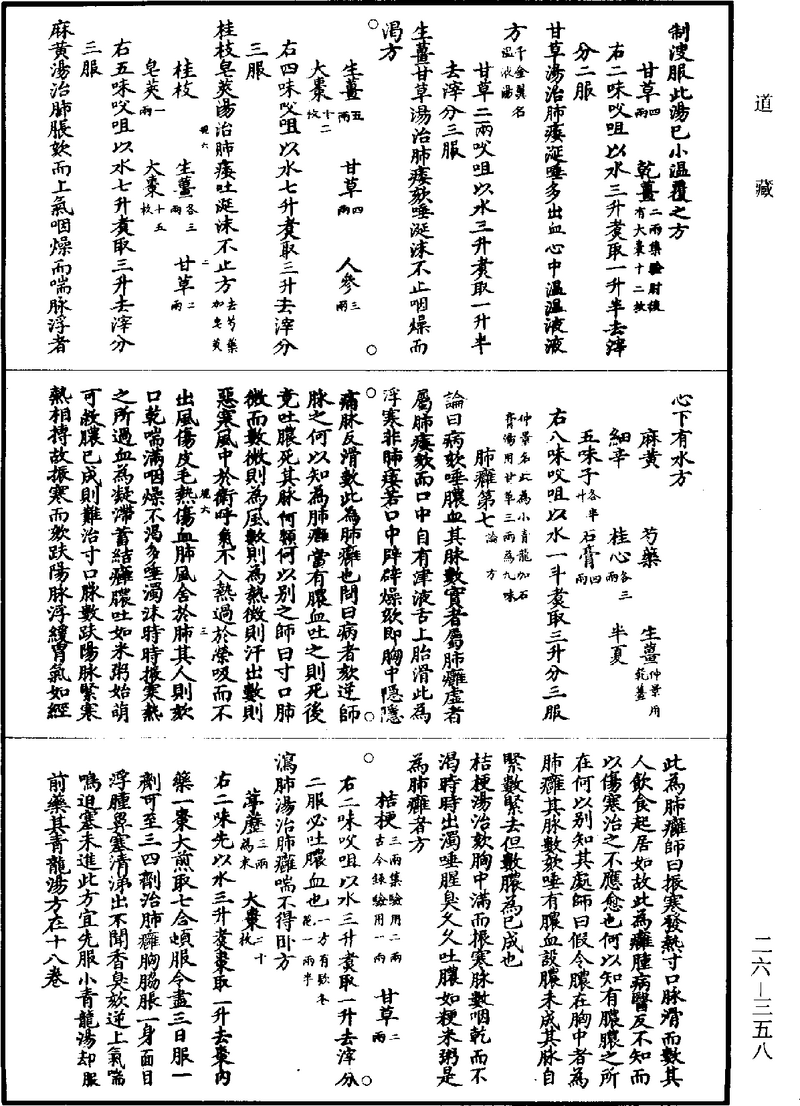 道藏
制溲服此湯已小温覆之方
甘草四兩　乾薑二兩集驗肘後有大棗十二枚
右二味㕮咀以水三升煮取一升半去滓
分二服
甘草湯治肺痿涎唾多出血心中温温液液
方千金翼名温液湯
甘草二兩㕮咀以水三升煮取一升半
去滓分三服
生薑甘草湯治肺痿欬唾涎沫不止咽燥而
渴方
生薑五兩　甘草四兩　人參三兩
大棗十二枚
右四味㕮咀以水七升煮取三升去滓分
三服
桂枝皂莢湯治肺痿吐涎沫不止方去芍藥加皂莢
規六　二
桂枝　生薑各三兩　甘草二兩
皂莢一兩　大棗十五枚
右五味㕮咀以水七升煮取三升去滓分
三服
麻黄湯治肺脹欬而上氣咽燥而喘脉浮者
心下有水方
麻黄　芍藥　生薑仲景用乾薑
細辛　桂心各三兩　半夏
五味子各半升　石膏四兩
右八味㕮咀以水一斗煮取三升分三服
仲景名此為小青龍加石膏湯用甘草三兩為九味
肺癰第七論　方
論曰病欬唾膿血其脉數實者屬肺癰虛者
屬肺痿欬而口中自有津液舌上胎滑此為
浮寒非肺痿若口中辟辟燥欬即胸中隱隱
痛脉反滑數此為肺癰也問曰病者欬逆師
脉之何以知為肺癰當有膿血吐之則死後
竟吐膿死其脉何類何以别之師曰寸口肺
微而數微則為風數則為熱微則汗出數則
惡寒風中於衛呼氣不入熱過於榮吸而不
出風傷皮毛熱傷血肺風舍於肺其人則欬
規六　三
口乾喘滿咽燥不渴多唾濁沫時時振寒熱
之所過血為凝滯蓄結癰膿吐如米粥始萌
可救膿已成則難治寸口脉數趺陽脉緊寒
熱相搏故振寒而欬趺陽脉浮緩胃氣如經
此為肺癰師曰振寒發熱寸口脉滑而數其
人飲食起居如故此為癰腫病醫反不知而
以傷寒治之不應愈也何以知有膿膿之所
在何以别知其處師曰假令膿在胸中者為
肺癰其脉數欬唾有膿血設膿未成其脉自
緊數緊去但數膿為已成也
桔梗湯治欬胸中滿而振寒脉數咽乾而不
渴時時出濁唾腥臭久久吐膿如粳米粥是
為肺癰者方
桔梗三兩集驗用二兩古今録驗用一兩　甘草二兩
右二味㕮咀以水三升煮取一升去滓分
二服必吐膿血也一方有欵冬花一兩半
瀉肺湯治肺癰喘不得卧方
葶藶三兩為末　大棗二十枚
右二味先以水三升煮棗取一升去棗内
藥一棗大煎取七合頓服令盡三日服一
劑可至三四劑治肺癰胸脇脹一身面目
浮腫鼻塞清涕出不聞香臭欬逆上氣喘
鳴迫塞未進此方宜先服小青龍湯却服
前藥其青龍湯方在十八卷
二六—三五八